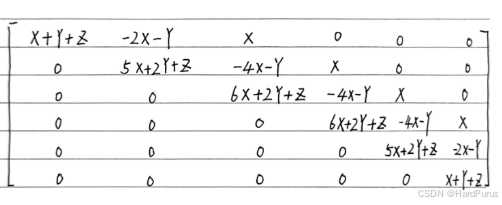 X+Y+Z -2X-Y X 0 0 0
0 5X+2Y+Z -4X-Y X 0 0
0 0 6X+2Y+Z -4X-Y X 0
0 0 0 6X+2Y+Z -4X-Y X
0 0 0 0 5X+2Y+Z -2X-Y
0 0 0 0 0 X+Y+Z
CSDN @HardPurus